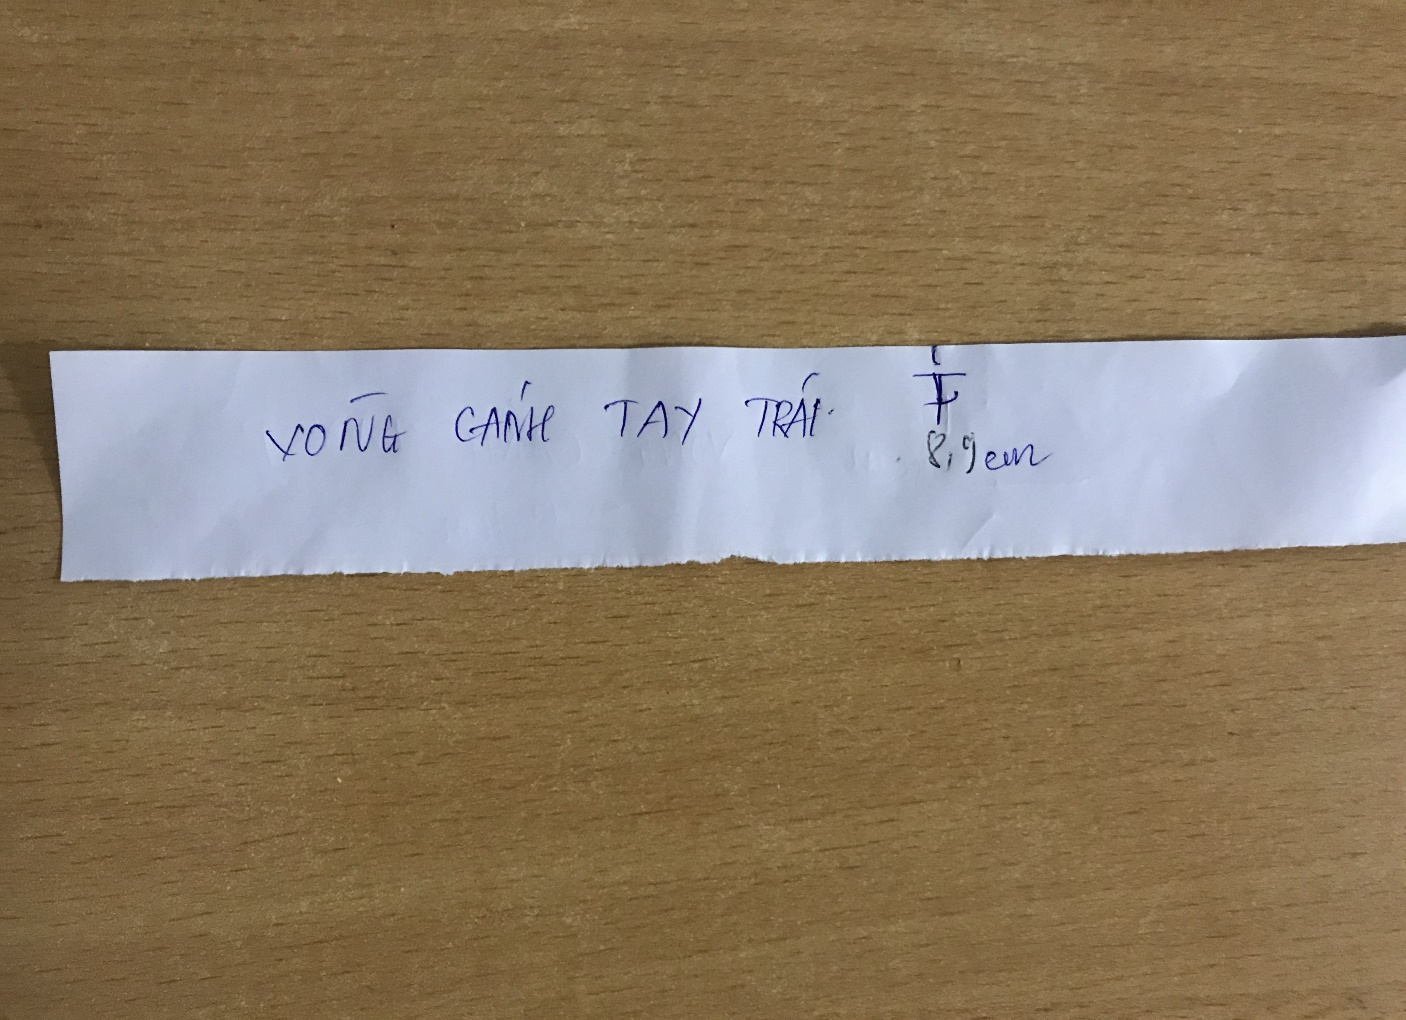 VÒNG CÁNH TAY TRÁI
8,9cm